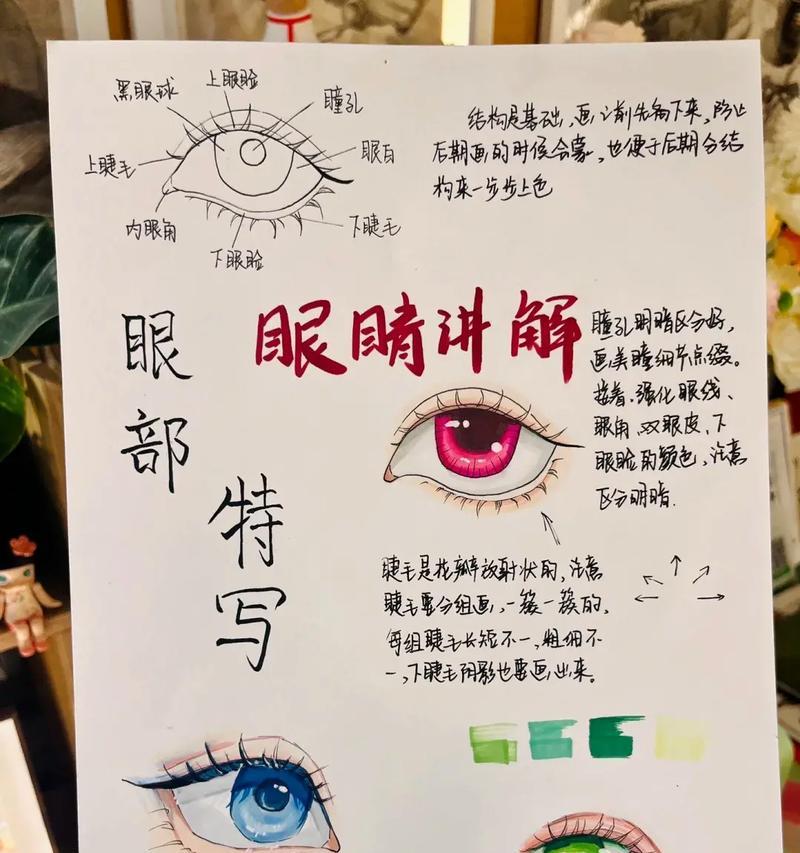 黑眼球
上眼睑
瞳孔
眼白
上睫毛
内眼角
下眼睑
下睫毛
结构是基础,画之前先构下来,防止
后期画的时候会蒙,也便于后期分结
构来一步步上色
眼部
特写
眼睛讲解
瞳孔明暗区分好,
画美瞳细节点缀。
接着,强化眼线、
眼角、双眼皮、下
眼睑的颜色,注意
区分明暗.
睫毛是花瓣放射状的,注意
睫毛要分组画,一簇一簇的,
每组睫毛长短不一,粗细不
一,下睫毛阴影也要画出来。